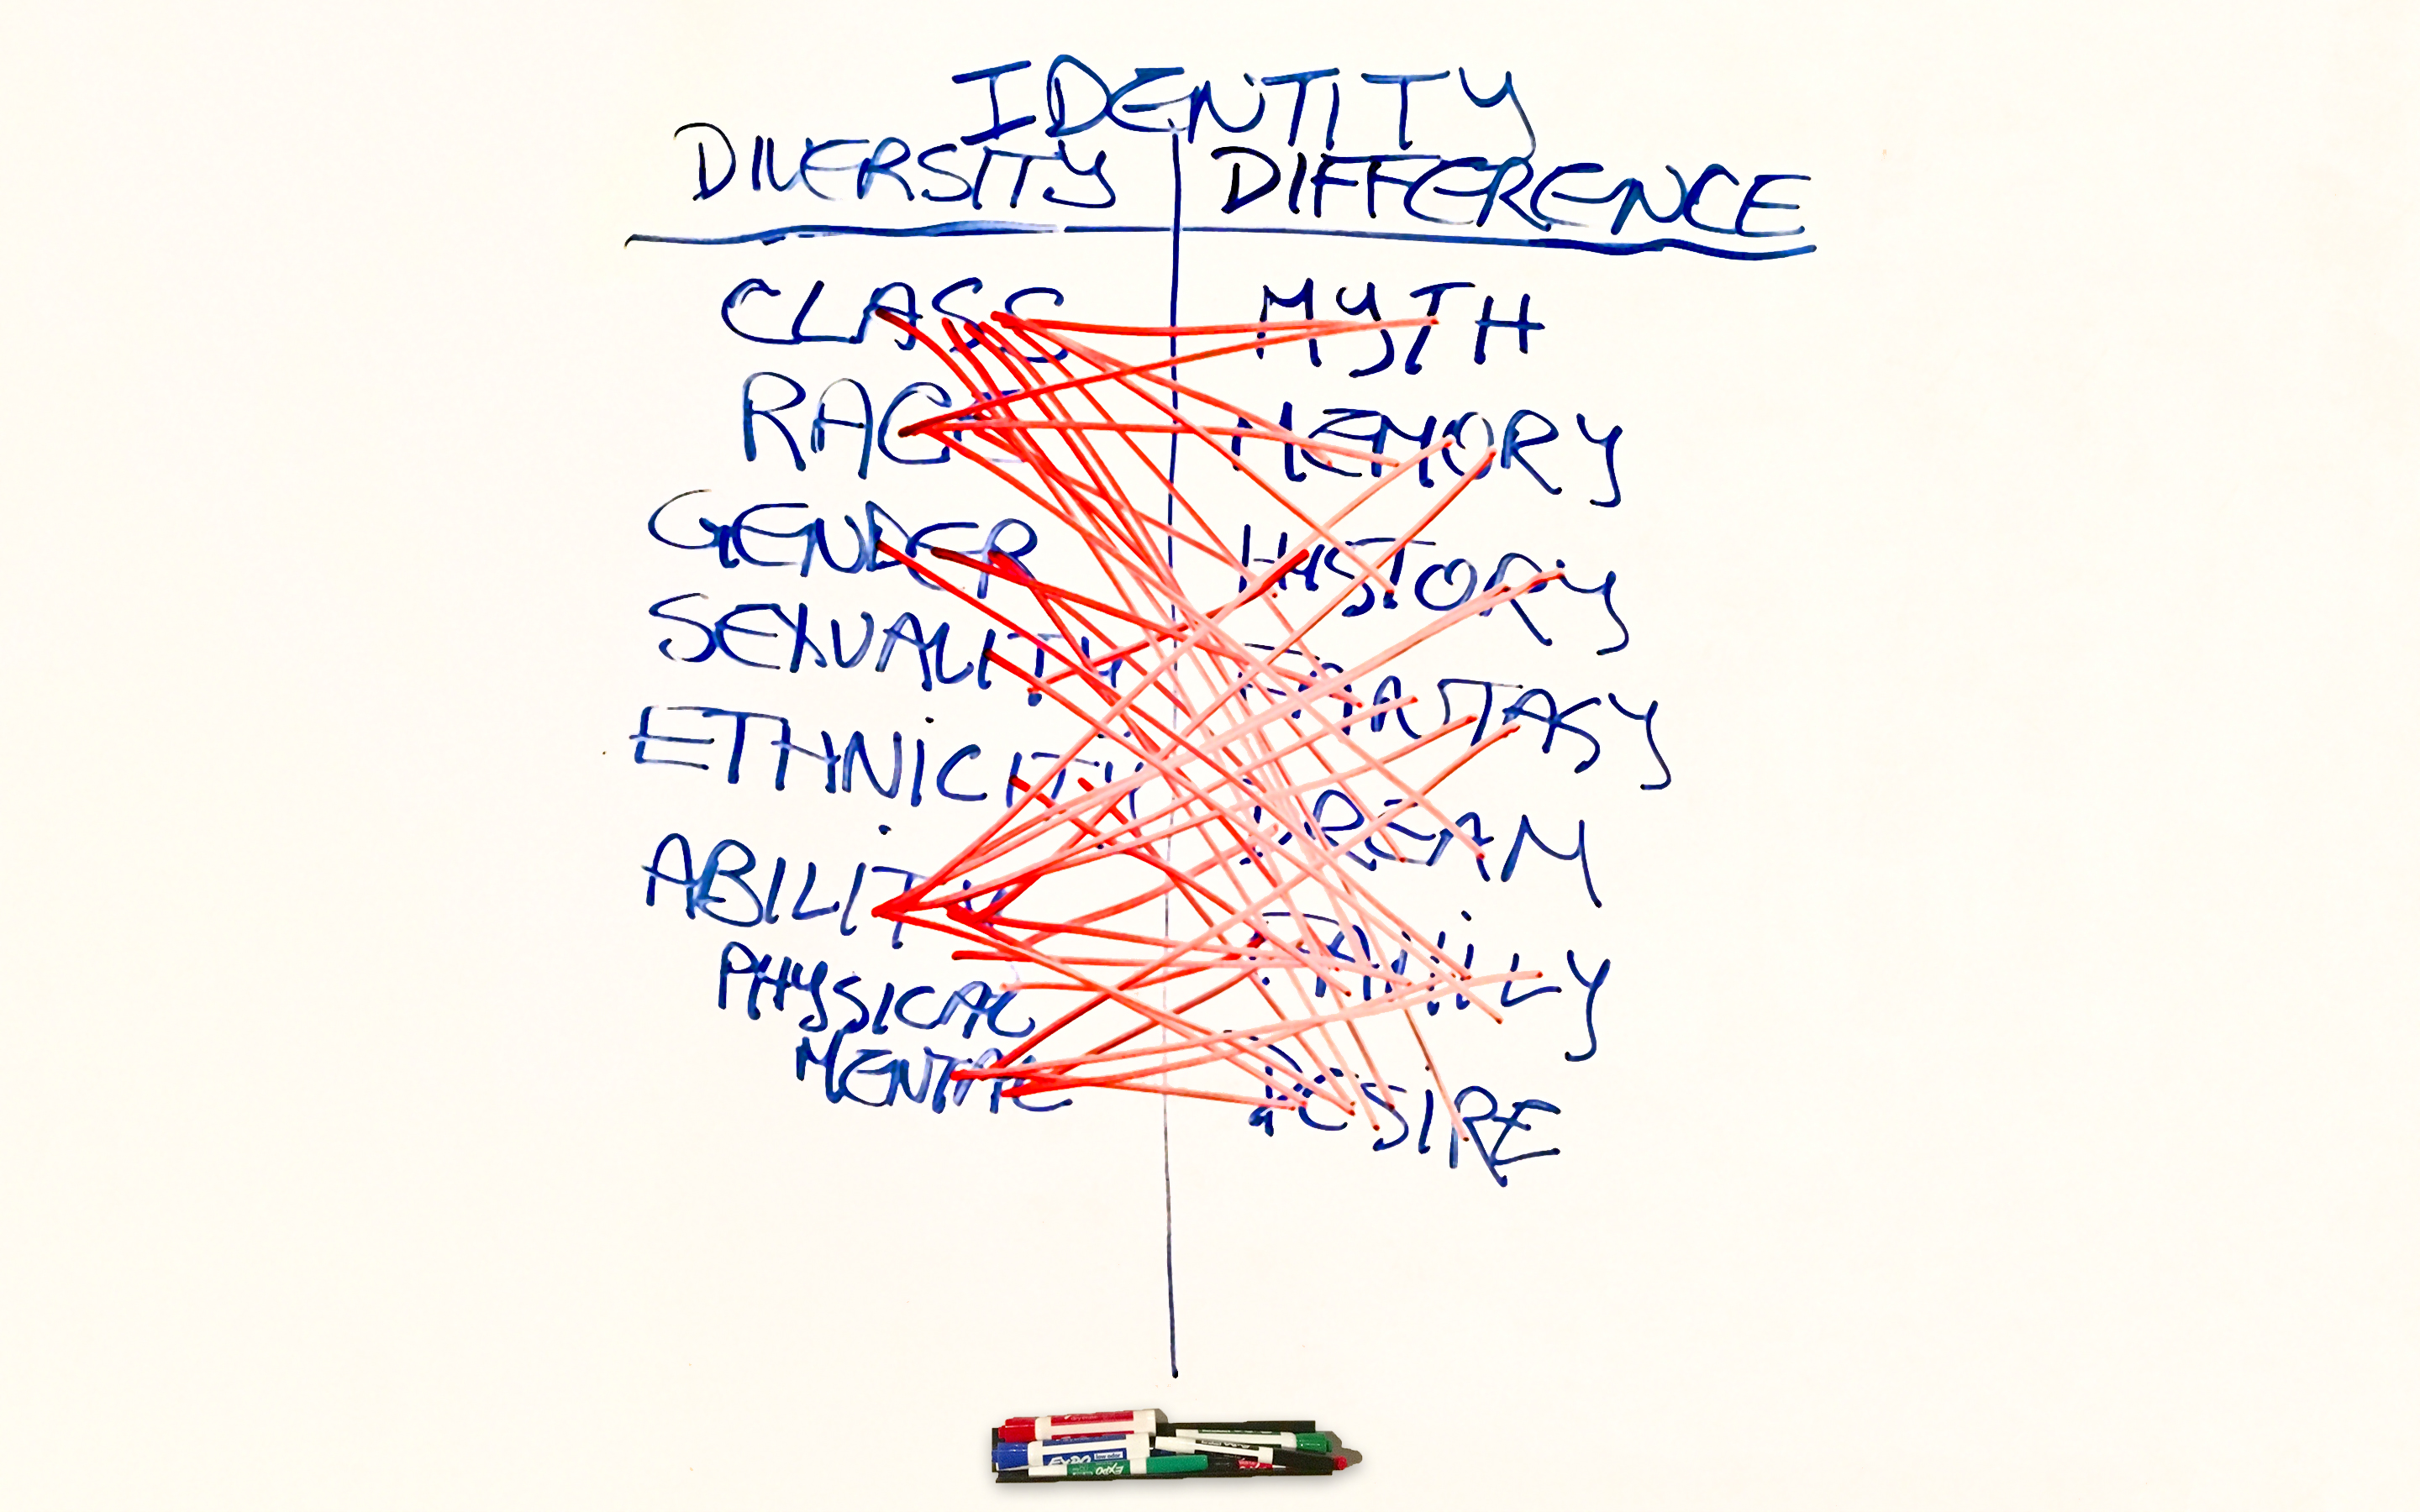 IDENTITY
DIVERSITY DIFFERENCE
CLASS MYTH
RACE MEMORY
GENDER HISTORY
SEXUALITY FANTASY
ETHNICITY DREAM
ABILITY FAMILY
PHYSICAL
MENTAL DESIRE
EXPO
EXPO